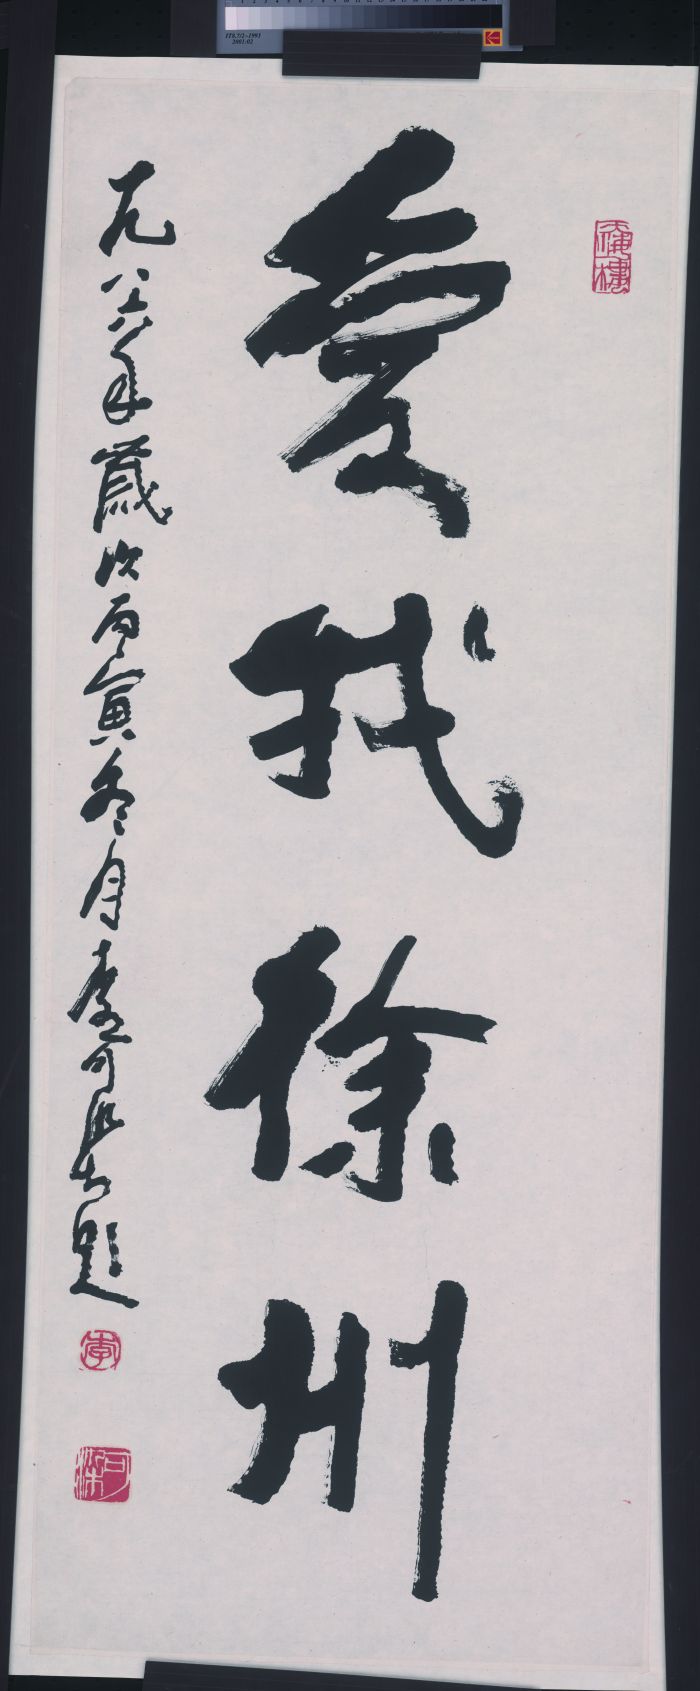 IT8.7/2-1993
2001:02
爱我徐州
一九八六年歲次丙寅冬月李可染題
李
可染